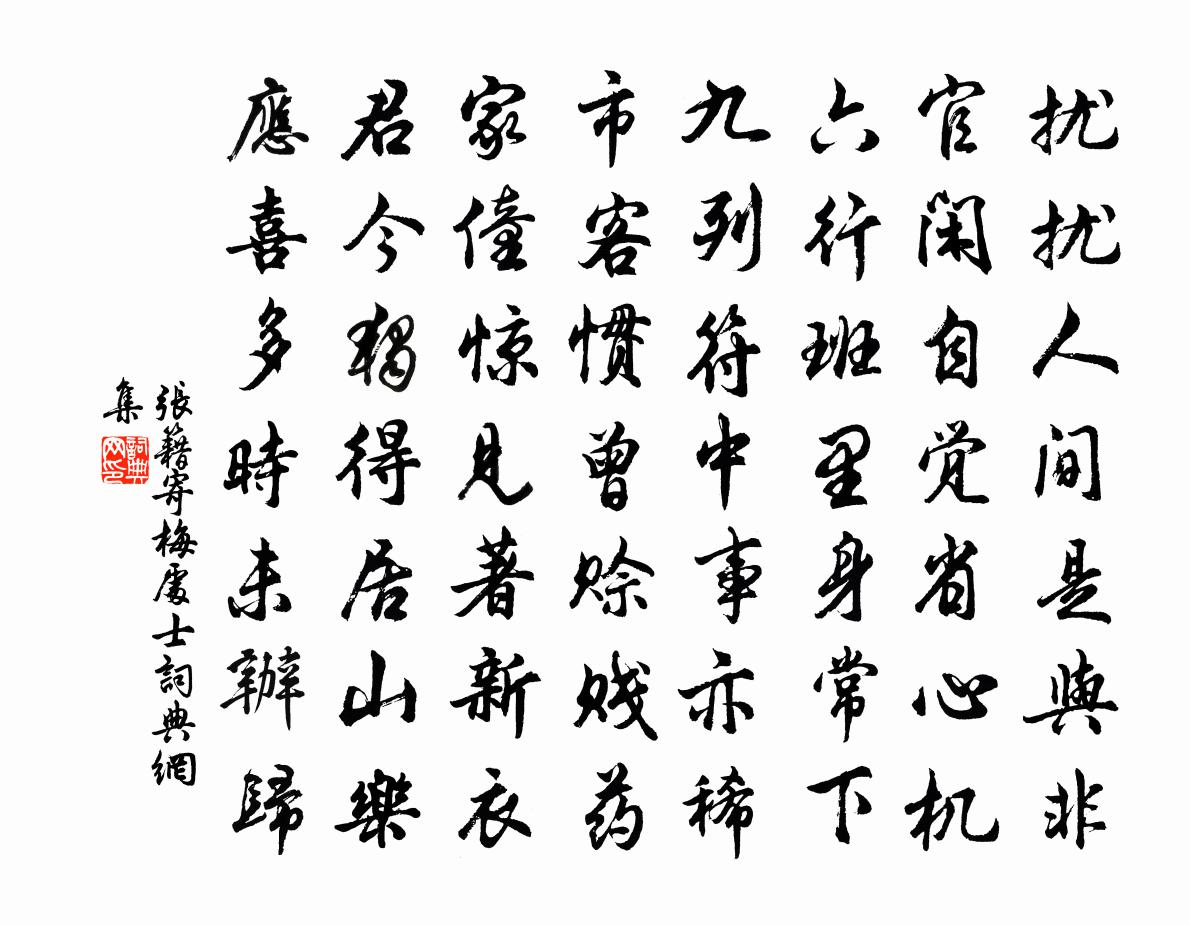 扰扰人间是與非
官闲自觉省心机
六行班里身常下
九列符中事亦稀
市客惯曾赊贱药
家僮惊见著新衣
君今獨得居山樂
應喜多時未辦歸
張籍寄梅處士詞典網
集
詞典网印